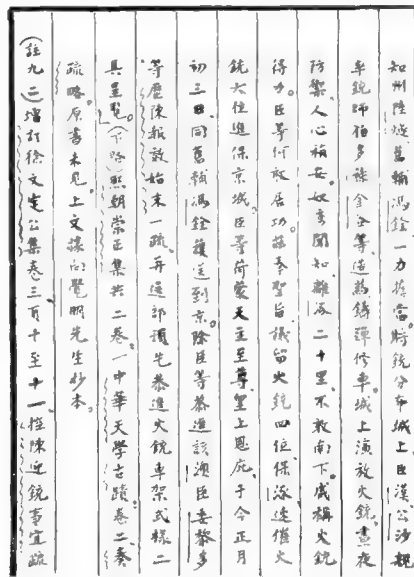 知州陸燧、舊輔馮銓、一力擔當時銃分布城上臣漢、公沙親
率銃師伯多祿金荅等造藥鑄彈修車城上演放火銃、晝夜
防禦、人心稍安、奴虜聞知、離涿二十里、不敢南下、咸稱火銃
得力。臣等何敢居功。茲奉聖旨議留火銃四位保涿、速催火
銃大位進保京城、臣等荷蒙天主至尊皇上恩庇、于今正月
初三日、同舊輔馮銓護送到京。除臣等恭進該澳臣委黎多
等歷陳報效始末一疏、再通部預先恭進火銃車架式樣二
具呈覽。(下略)熙朝崇正集共二卷、一中華天學古蹟卷二奏
疏略。原書未見、上文據向覺明先生抄本。
(註九二)增訂徐文定公集卷三頁十至十一、控陳迎銃事宜疏